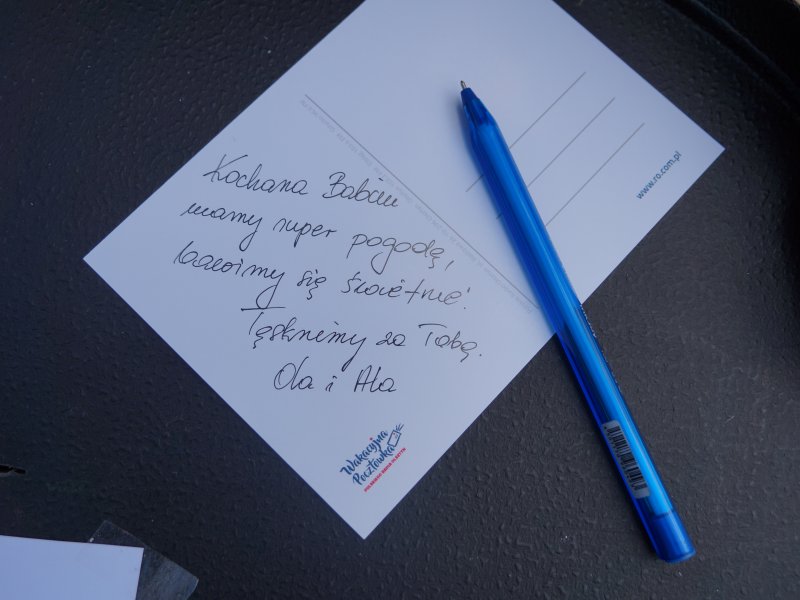 Kochana Babciu
mamy super pogodę,
bawimy się świetnie!
Tęsknimy za Tobą.
Ola i Ala
Wakacyjna
Pocztówka
www.ro.com.pl